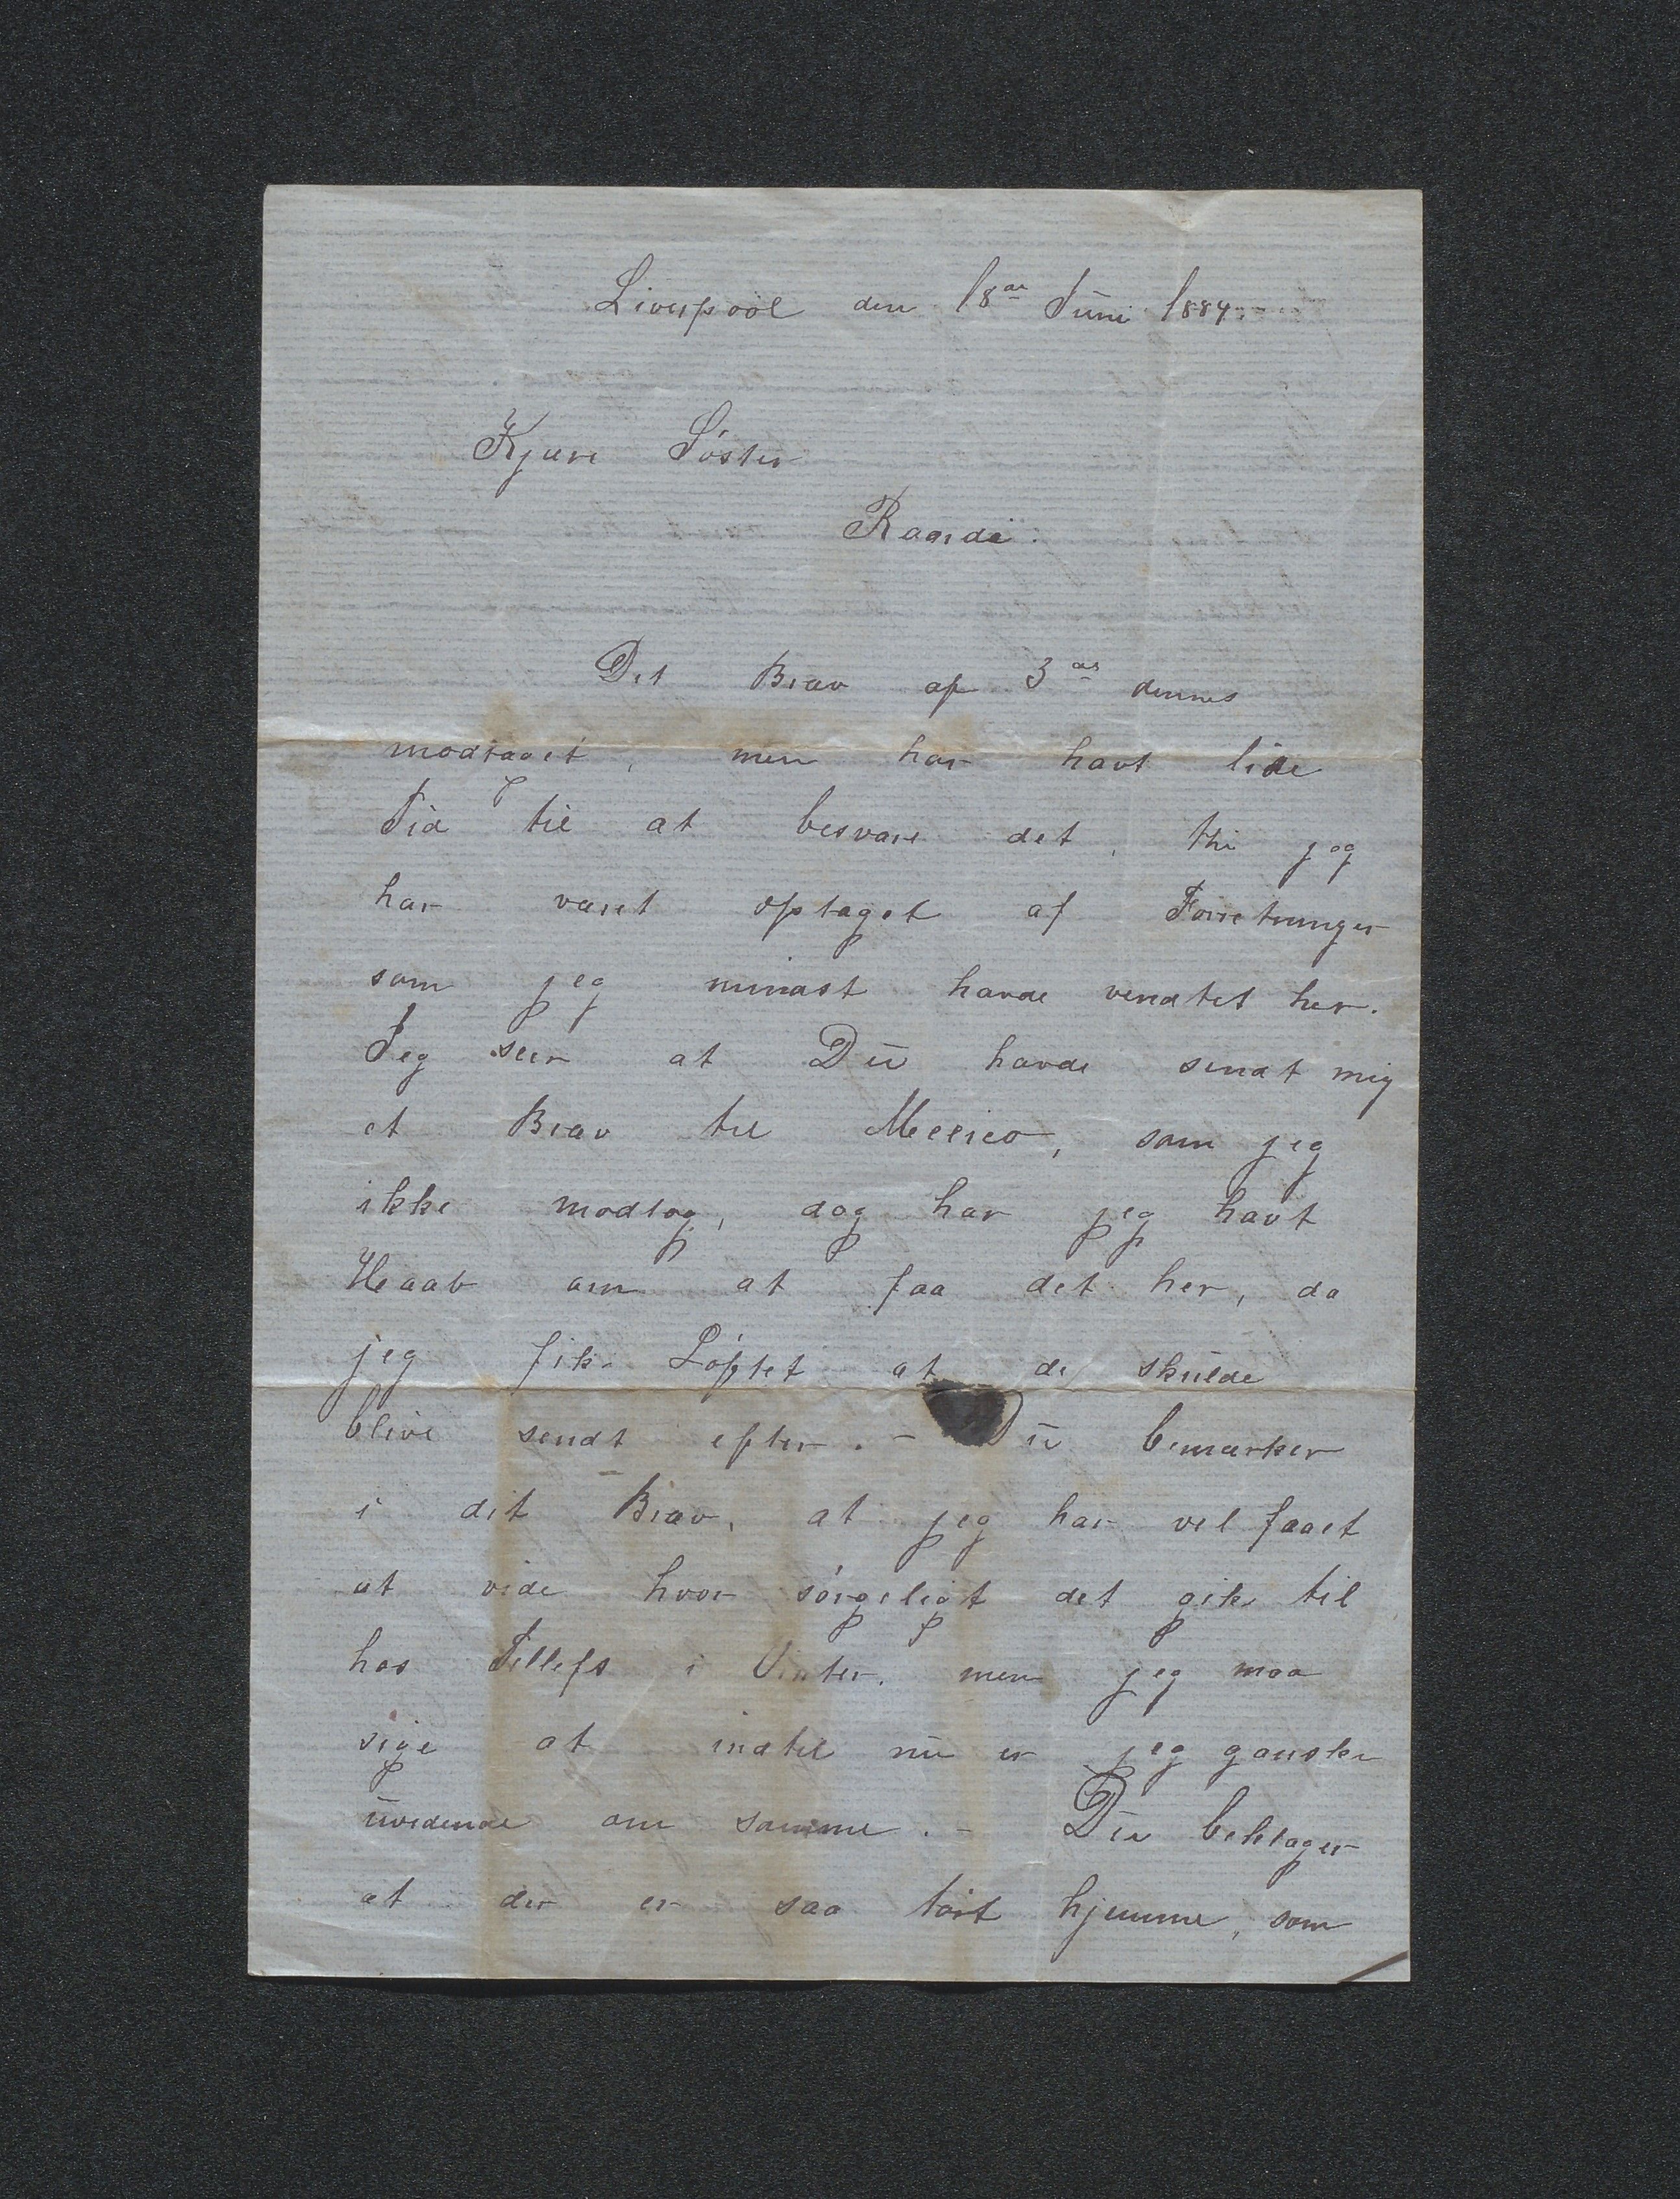 Liverpool den 18de Juni 1884.
Kjære Söster
Ragndi.
Dit Brev af 3de dennes
modtaget, men har havt lide
Tid til at besvare det, thi jeg
har været optaget af Forretninger
som jeg mindst havde vendtet her.
Jeg seer at Du havde sendt mig
et Brev til Mexico, som jeg
ikke modtog, dog har jeg havt
Haab om at faa det her, da
jeg fik Löftet at de skulde
blive sendt efter. - Du bemærker
i dit Brev, at jeg har vel faaet
at vide hvor sörgeligt det gik til
hos Tellefs i Vinter, men jeg maa
sige at indtil nu er jeg ganske
uvidende om samme. - Du beklager
at der er saa tört hjemme, som